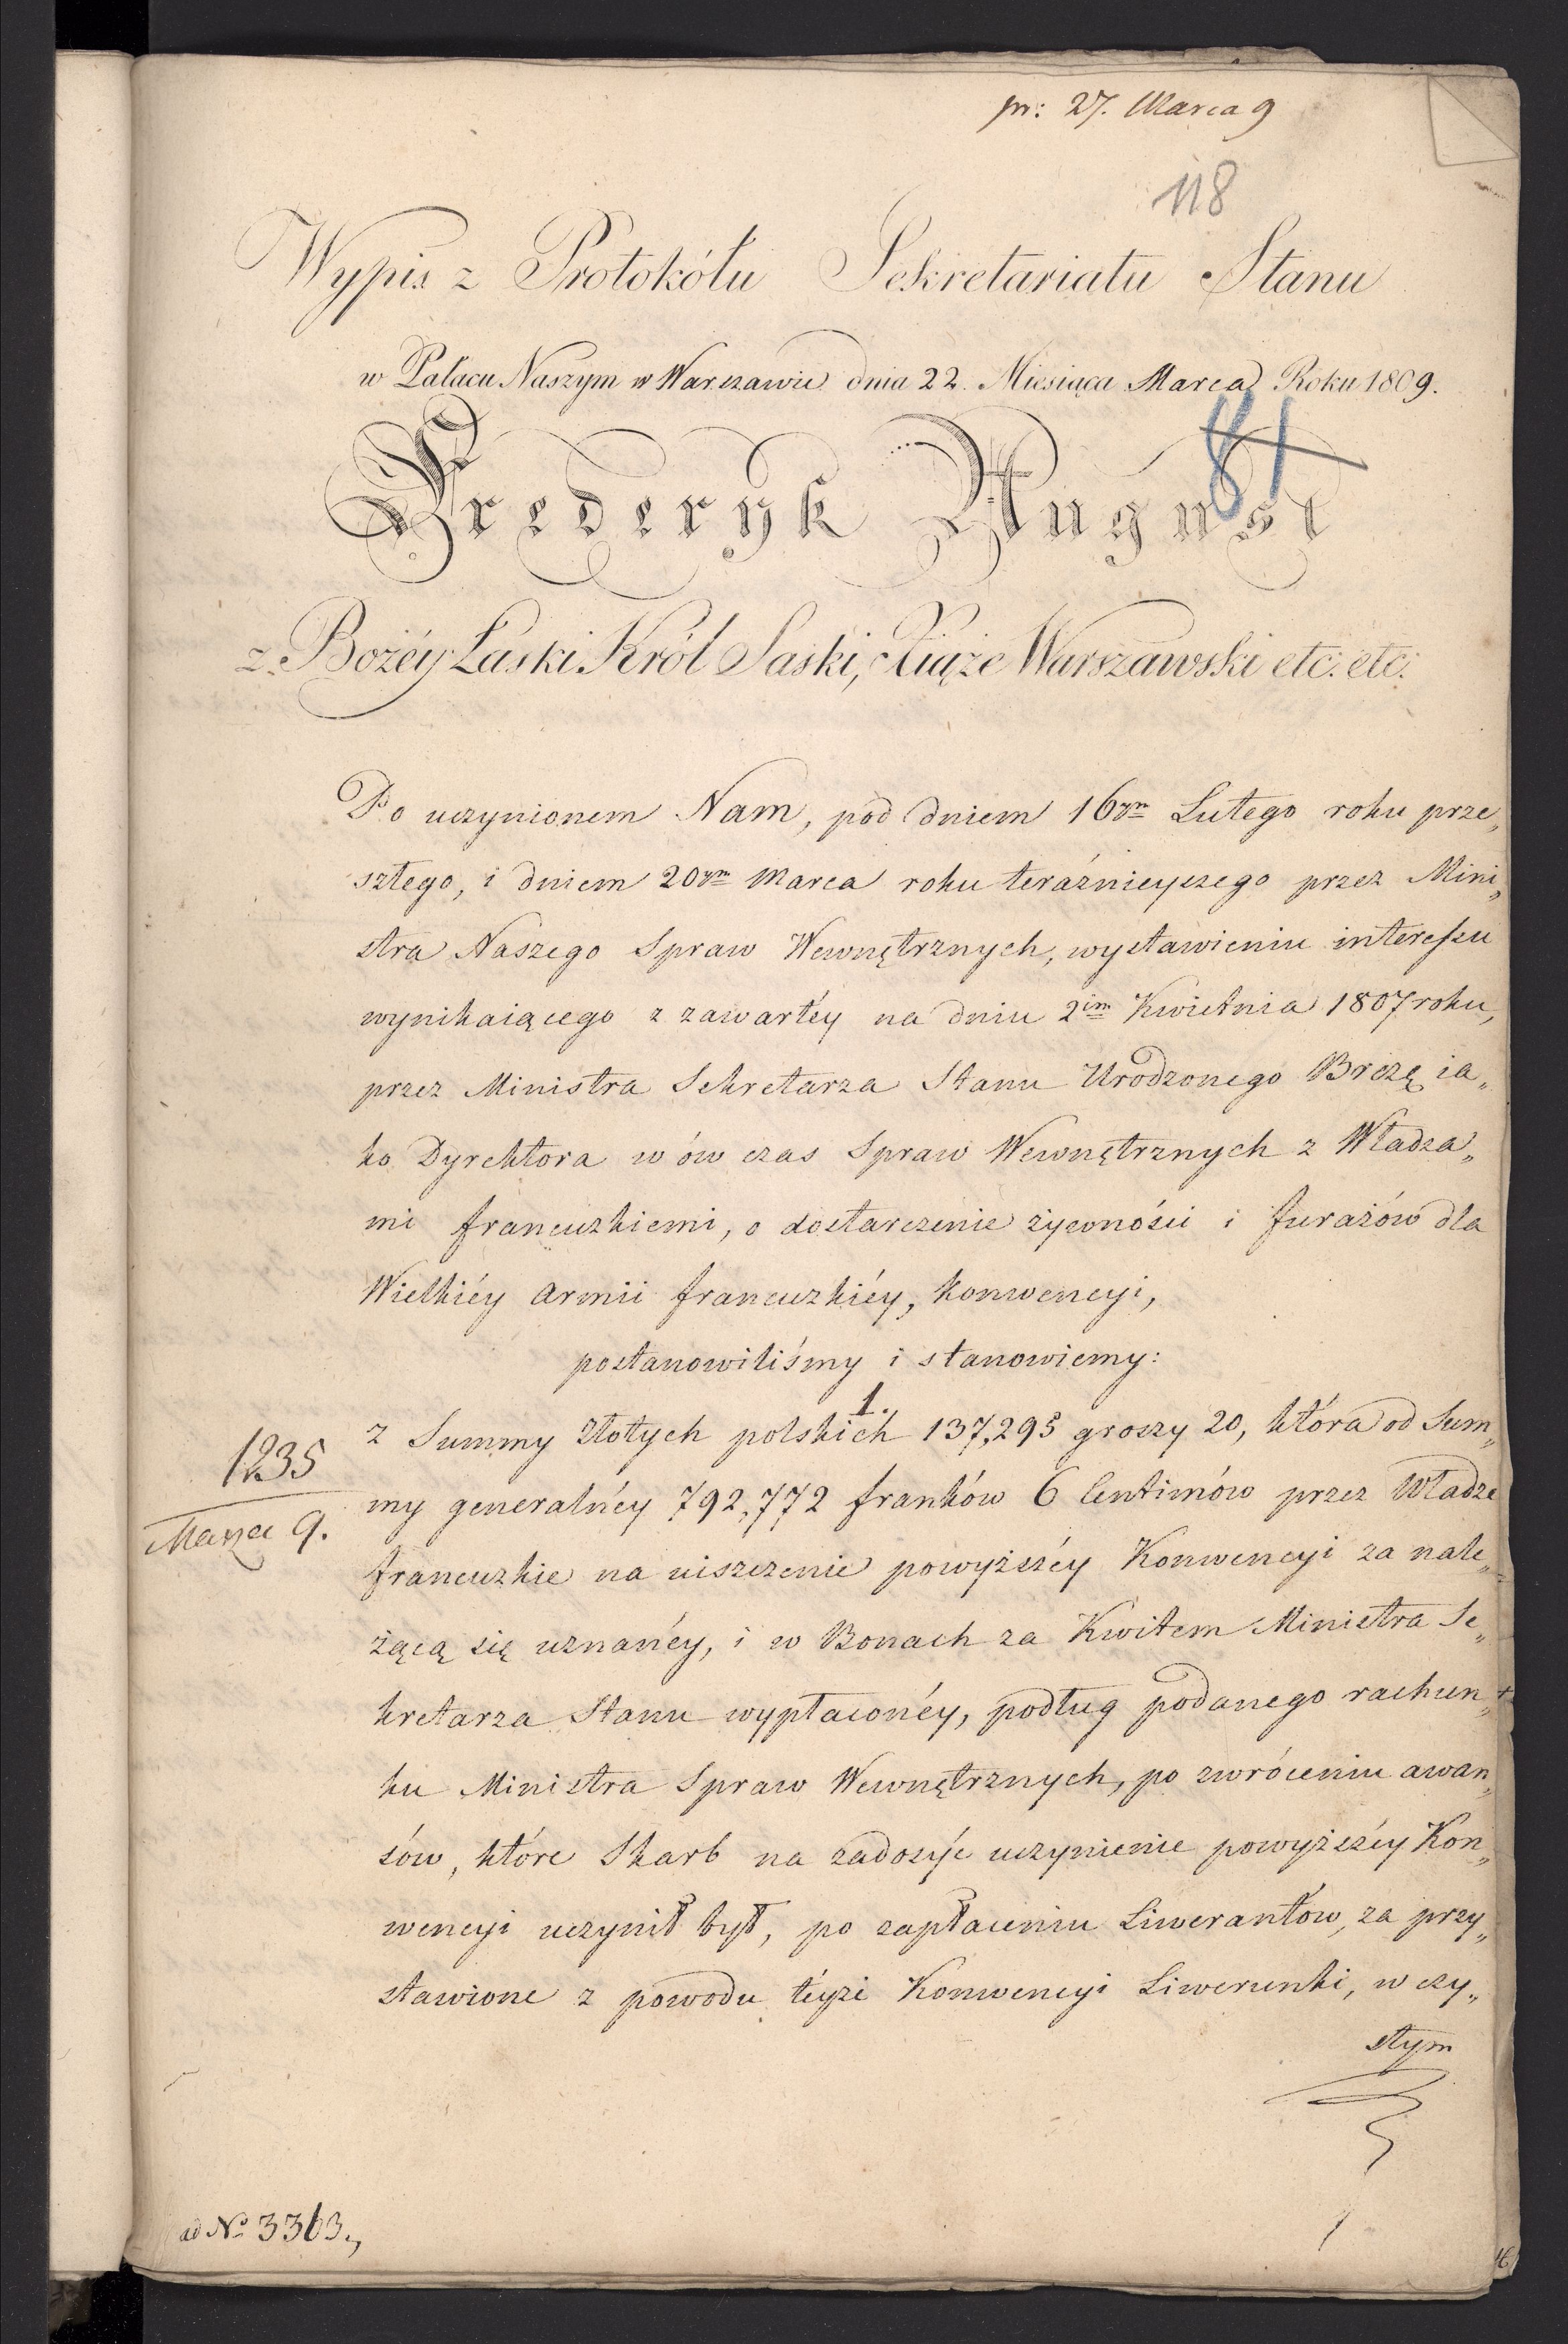 pr: 27. Marca 9
118
Wypis z Protokółu Sekretariatu Stanu
w Pałacu Naszym w Warszawie dnia 22. Miesiąca Marca Roku 1809.
81
Frederyk August
z Bożéy Łaski Król Saski, Xiąże Warszawski etc: etc:
Po uczynionem Nam, pod dniem 16ym Lutego roku prze„
szłego, i dniem 20ym Marca roku teraźnieyszego przez Mini„
stra Naszego Spraw Wewnętrznych, wystawieniu interessu
wynikaiącego z zawartéy na dniu 2im Kwietnia 1807 roku,
przez Ministra Sekretarza Stanu Urodzonego Brezę ia„
ko Dyrektora w ów czas Spraw Wewnętrznych z Władza„
mi francuzkiemi, o dostarczenie żywności i furażów dla
Wielkiéy Armii francuzkiéy, Konwencyi,
postanowiliśmy i stanowiemy:
1.
z Summy Złotych polskich 137,295 groszy 20, która od Sum„
my generalnéy 792,772 franków 6 Centimów przez Władze
francuzkie na uiszczenie powyższéy Konwencyi za nale„
żącą się uznanéy, i w Bonach za Kwitem Ministra Se„
kretarza Stanu wypłaconéy, podług podanego rachun„
ku Ministra Spraw Wewnętrznych, po zwróceniu awan„
sów, które Skarb na zadosyć uczynienie powyższéy Kon„
wencyi uczynił był, po zapłaceniu Liwerantów, za przy„
stawione z powodu téyże Konwencyi Liwerunki, w czy„
stym
1235
Marca 9.
ad No 3363.,